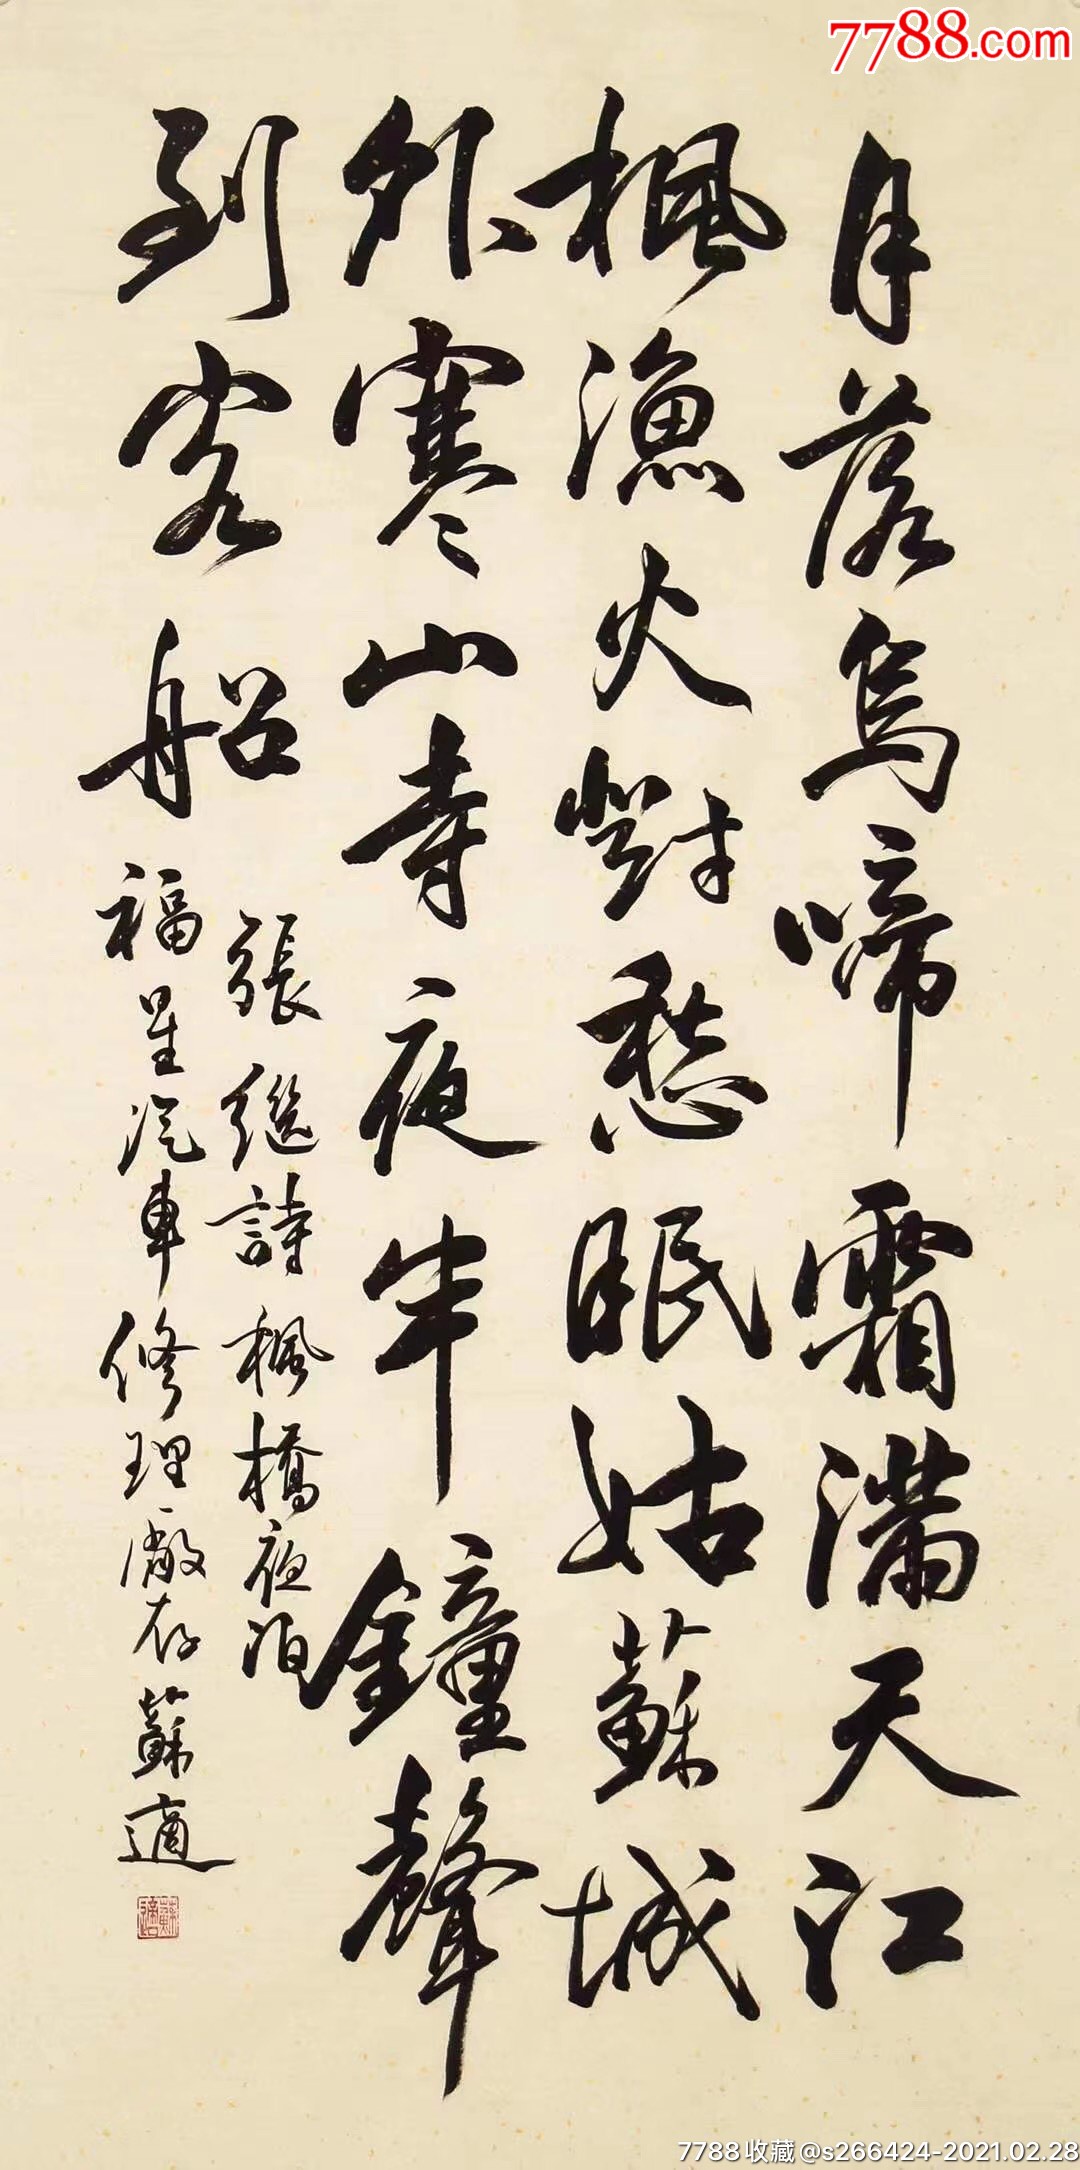 7788.com
月落烏啼霜滿天江
楓漁火對愁眠姑蘇城
外寒山寺夜半鐘聲
到客船
張繼詩楓橋夜泊
福星汽車修理廠存蘇適
蘇適
7788收藏@s266424-2021.02.28